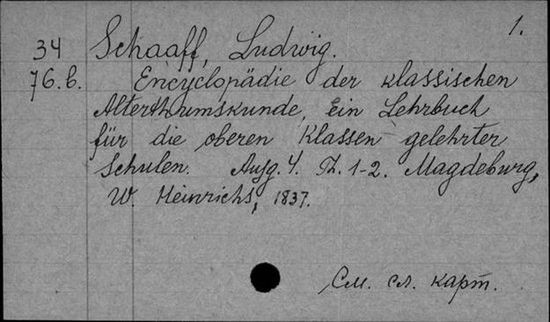 1.
34 Schaaff, Ludwig.
76.b. Encyclopädie der klassischen
Alterthumskunde, Ein Lehrbuch
für die oberen Klassen gelehrter
Schulen. Ausg. 4. Th. 1-2. Magdeburg,
W. Heinrichs, 1837.
См. сл. карт.